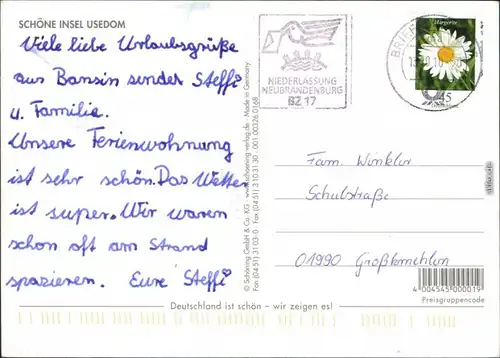 SCHÖNE INSEL USEDOM
Viele liebe Urlaubsgrüße
aus Bansin sendet Steffi
u. Familie.
Unsere Ferienwohnung
ist sehr schön. Das Wetter
ist super. Wir waren
schon oft am Strand
spazieren. Eure Steffi
© Schöning GmbH & Co. KG · www.schoening-verlag.de · Made in Germany
Fax (04 51) 31 03-0 · Fax (04 51) 3 10 31 30 · 001 00326 0168
NIEDERLASSUNG
NEUBRANDENBURG
BZ 17
BRIEF
Margerite
45
Fam. Winkler
Schulstraße
01990 Großkmehlen
4 004545 000019
Preisgruppencode
Deutschland ist schön – wir zeigen es!